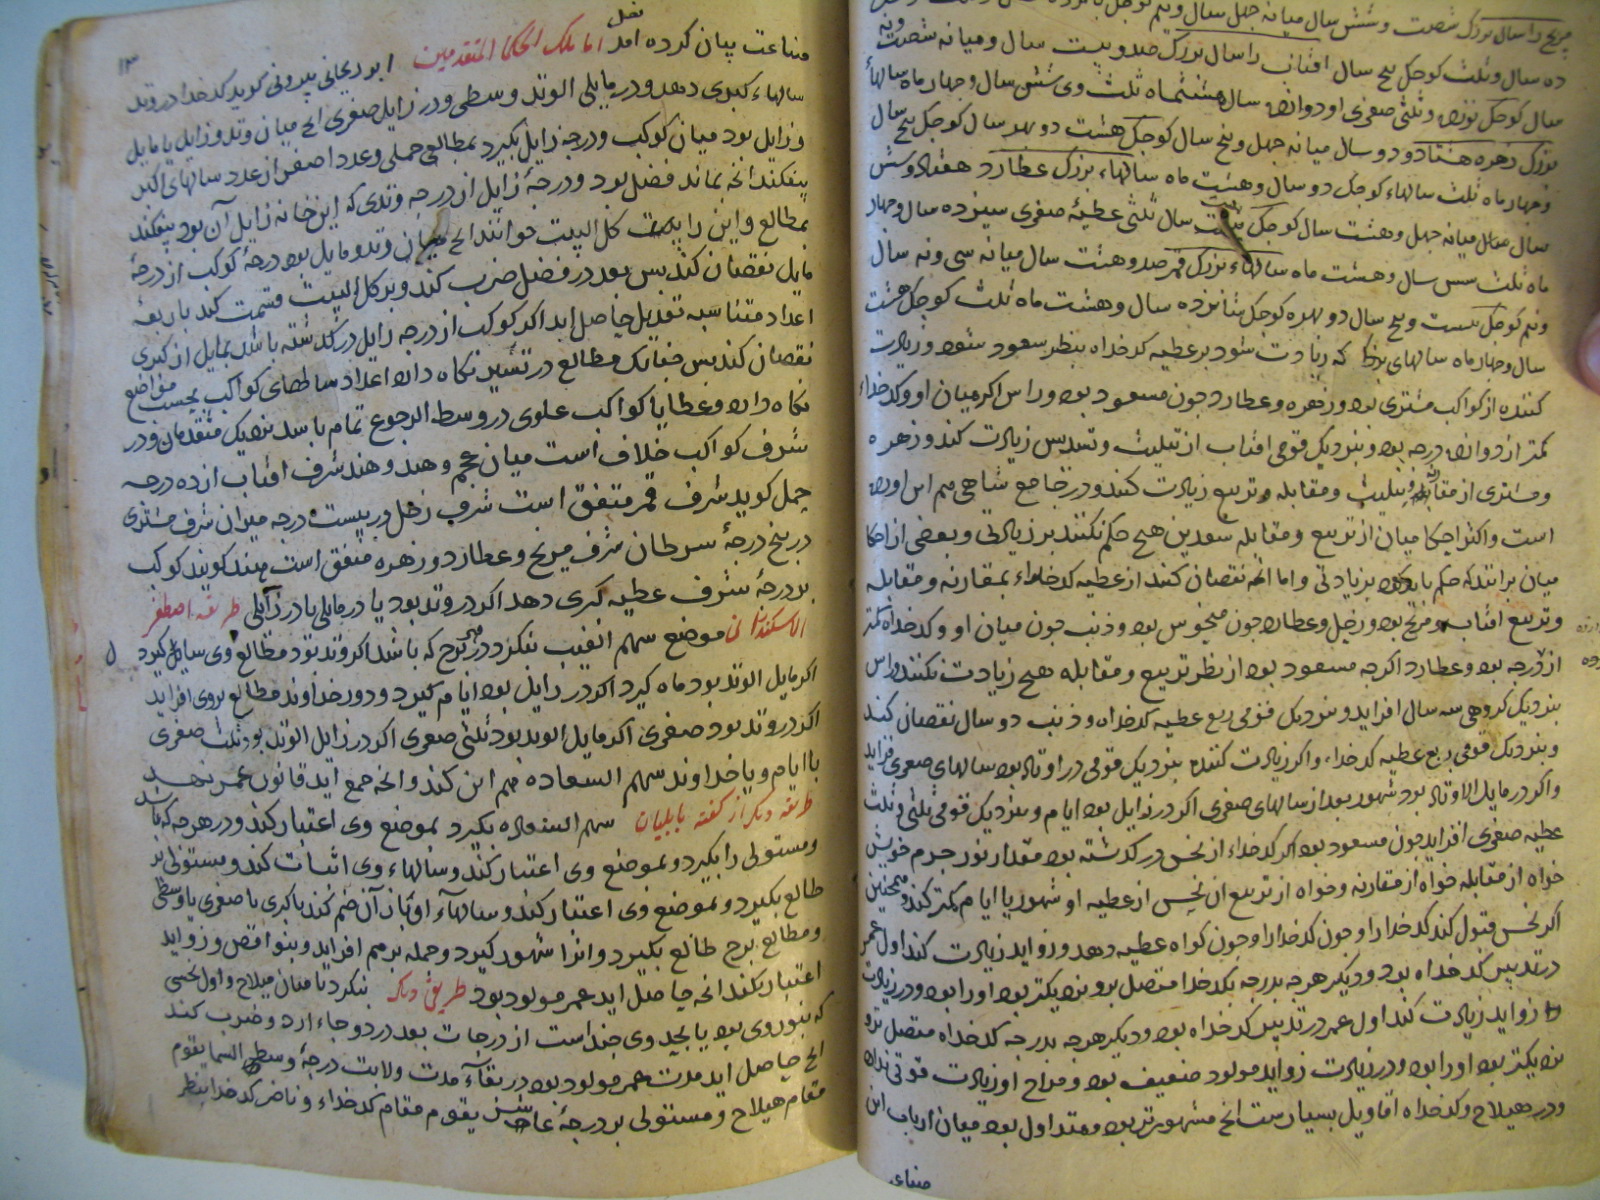 مریخ را سال بزرک شصت و شش سال میانه جهل سال و نیم کوجک
ده سال و ثلث کوجک پنج سال افتاب را سال بزرک صد و بیست سال و میانه شصت و نه
سال کوجک نوزده و ثلثی صغری او دوازده سال هشتماه ثلث وی شش سال و جهار ماه سالهاء
بزرک زهره هشتاد و دو سال میانه جهل و پنج سال کوجک هشت دو بهر سال کوجک پنج سال
و جهار ماه ثلث سالهاء کوجک دو سال و هشت ماه سالهاء بزرک عطارد هفتاد و شش
سال میانه جهل و هشت سال کوجک بیست سال ثلثی عطیهٔ صغری سیزده سال و جهار
ماه ثلث شش سال و هشت ماه سالهاء بزرک قمر صد و هشت سال میانه سی و نه سال
و نیم کوجک بیست و پنج سال دو بهره کوجک شانزده سال و هشت ماه ثلث کوجک هشت
سال و جهار ماه سالهای که زیادت شود بر عطیه کدخداه بنظر سعود شود و زیادت
کننده از کواکب مشتری بود و زهره و عطارد جون مسعود بود و راس اکر میان او و کدخداء
کمتر از دوازده درجه بود و بنزدیک قومی افتاب از تثلیث و تسدیس زیادت کند و زهره
و مشتری از مقارنه و تثلیث و مقابله و تربیع زیادت کنند و در جامع شاهی هم این اورده
است و اکثر احکامیان از تربیع و مقابله سعدین هیج حکم نکنند بر زیادتی و بعضی از احکا
میان برانند که حکم باید کرد بزیادتی و اما انجه نقصان کنند از عطیه کدخداء بمقارنه و مقابله
و تربیع افتاب و مریخ بود و زحل و عطارد جون منحوس بود و ذنب جون میان او و کدخداه کمتر
از درجه بود و عطارد اکرجه مسعود بود از نظر تربیع و مقابله هیج زیادت نکنند و راس
بنزدیک کروهی سه سال افزاید و بنزدیک قومی ربع عطیه کدخداه و ذنب دو سال نقصان کند
و بنزدیک قومی ربع عطیه کدخداء، و اکر زیادت کننده بنزدیک قومی در اوتاد بود سالهای صغری فزاید
و اکر در مایل الاوتاد بود شهور بعد از سالهای صغری اکر در زایل بود ایام و بنزدیک قومی ثلثی و ثلث
عطیه صغری افزاید جون مسعود بود اکر کدخداء از نحس در کذشته بود مقدار نور جرم خویش
خواه از مقابله خواه از مقارنه و خواه از تربیع ان نحس از عطیه او شهور یا ایام کمتر کند و همجنین
اکر نحس قبول کند کدخدا را و جون کدخدا را و جون کواه عطیه دهد و زواید زیادت کند اول عمر
در تدبیر کدخداه بود و دیکر هرجه بدرجه بکدخدا متصل برو نزدیکتر بود او را بود و در زیادت
زواید زیادت کند اول عمر در تدبیر کدخداه بود و دیکر هرجه بدرجه کدخداه متصل ترو
نزدیکتر بود او را بود و در زیادت زواید مولود ضعیف بود و مزاج او زیادت قوتی نداه
و در هیلاج و کدخداه اقاویل بسیارست انج مشهورتر بود و متداول بود میان ارباب این
صناعت
صناعت بیان کرده امد فصل اما ملک الحکما المتقدمین ابو ریحانی بیرونی کوید کدخدا در وتد
سالهاء کبری دهد و در مایلی الوتد وسطی و در زایل صغری انج میان وتد و زایل یا مایل
و زایل بود میان کوکب و درجه زایل بکیرد بمطالع حملی و عدد اصغر از عدد سالهای اکبر
بیفکند انجه بماند فضل بود و درجهٔ زایل از درجه وتدی که این خانه زایل آن بود بیفکند
بمطالع و این را کل البیت خوانند انج میان وتد و مایل بود درجهٔ کوکب از درجهٔ
مایل نقصان کند بس بعد در فضل ضرب کند و بر کل البیت قسمت کند باربعهٔ
اعداد متناسبه تعدیل حاصل اید اکر کوکب از درجه زایل در کذشته باشد بمایل از کبری
نقصان کند بس جنانک مطالع در تسییر نکاه دارد اعداد ساطهای کواکب بحسب مواضع
نکاه دارد و عطایا کواکب علوی در وسط الرجوع تمام باشد بنزدیک متقدمان و در
شرف کواکب خلاف است میان عجم و هند و هند شرف افتاب از ده درجه
حمل کوید شرف قمر متفق است شرف زحل در بیست درجه میزان شرف مشتری
در پنج درجهٔ سرطان شرف مریخ و عطارد و زهره متفق است هند کویند کوکب
بدرجهٔ شرف عطیه کبری دهد اکر در وتد بود یا در مایلی یا در زایلی طریقه اصطفر
الاسکندرانی موضع سهم الغیب بنکرد در هر برج که باشد اکر وتد بود مطالع وی سال کیرد
اکر مایل الوتد بود ماه کیرد اکر در زایل بود ایام کیرد و دور خداوند مطالع بروی افزاید
اکر در وتد بود صغری اکر مایل الوتد بود ثلثی صغری اکر در زایل الوتد بود ثلث صغری
با ایام و با خداوند سهم السعاده هم این کند و انجه جمع اید قانون عمر نهد
طریقه دیکر از کفته بابلیان سهم السعاده بکیرد بموضع وی اعتبار کند و در هرجه که باشد
و مستولی را بکیرد و بموضع وی اعتبار کند و سالهاء وی اثبات کند و مستولی بر
طالع بکیرد و بموضع وی اعتبار کند و سالهاء او باز آن ضم کند یا کبری یا صغری یا وسطی
و مطالع برج طالع بکیرد و انرا شهور کیرد و جمله برهم افزاید و بنواقص و زواید
اعتبار نکند انجه حاصل اید عمر مولود بود طریق دیکر بنکرد تا میان هیلاج و اول نحسی
که بنور وی بود یا بجد وی جند است از درجات بعد در دو جاء ارد و ضرب کند
انج حاصل اید مدت عمر مولود بود در بقاء مدت ولادت درجهٔ وسط السما یقوم
مقام هیلاج و مستولی بر درجهٔ عاشر یقوم مقام کدخداء و ناظر کدخدا بنظر